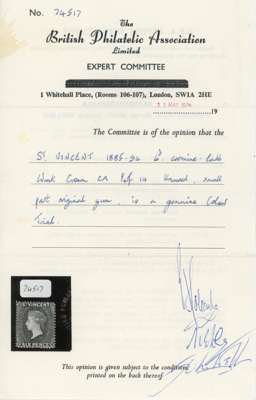 No. 74517
The
British Philatelic Association
Limited
EXPERT COMMITTEE
1 Whitehall Place, (Rooms 106-107), London, SW1A 2HE
MAY 1974
19
The Committee is of the opinion that the
St. VINCENT 1885-94 6d carmine-lake
Wmk Crown CA Perf 14 Unused, small
part original gum, is a genuine Colour
Trial.
74517
ST VINCENT
PENCE
This opinion is given subject to the conditions
printed on the back thereof